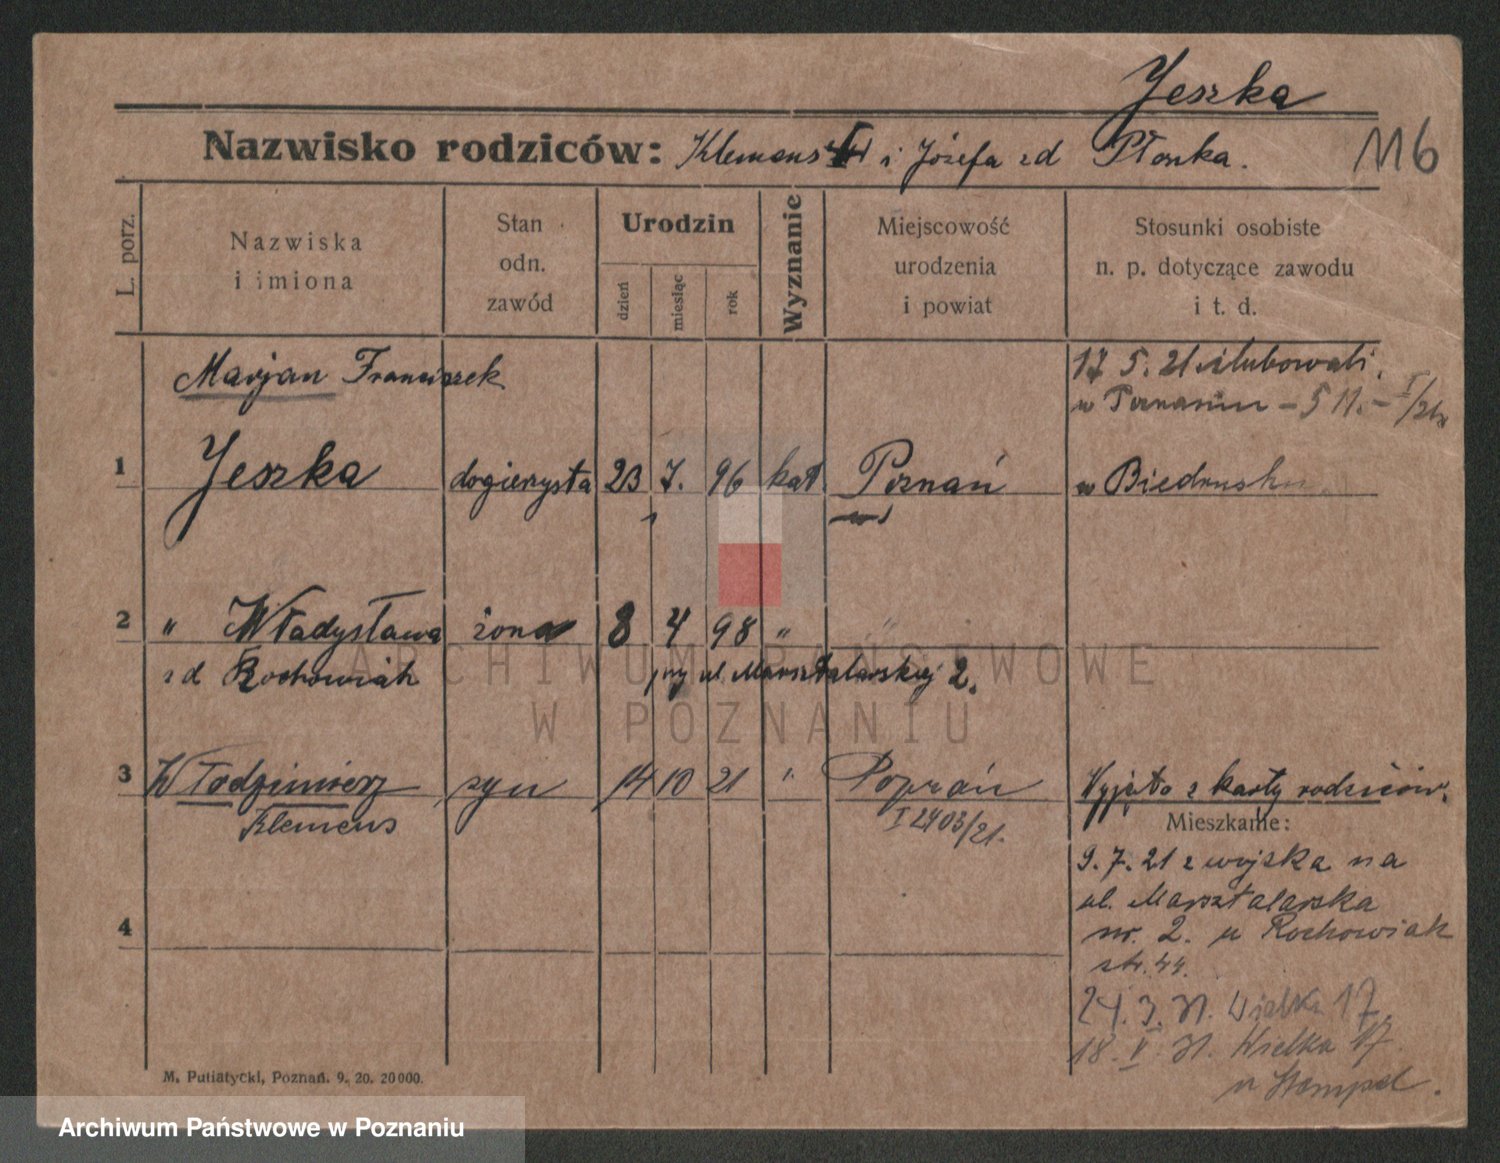 Yeszka
Nazwisko rodziców: Klemens i Józefa zd Płonka.
116
L. porz.
Nazwiska
i imiona
Stan
odn.
zawód
Urodzin
dzień
miesiąc
rok
Wyznanie
Miejscowość
urodzenia
i powiat
Stosunki osobiste
n. p. dotyczące zawodu
i t. d.
Marjan Franciszek
17 5. 21 ślubowali
w Poznaniu
1 Yeszka 23 7. 96 kat Poznań w Biedrusku
2 " Władysława żona 8 4 98 " "
zd Rochowiak przy ul. Marsztalarskiej 2.
3 Włodzimierz syn 14 10 21 " Poznań Wyjęto z karty rodziców.
Klemens
I 2403/21.
Mieszkanie:
9. 7. 21 z wojska na
ul. Marsztalarska
nr. 2. u Rochowiak
str. 44.
4
24. 3. 31. Wielka 17.
18. V. 31. Wielka 17.
u Stempel.
M. Putiatycki, Poznań. 9. 20. 20000.
ARCHIWUM PAŃSTWOWE
W POZNANIU
Archiwum Państwowe w Poznaniu